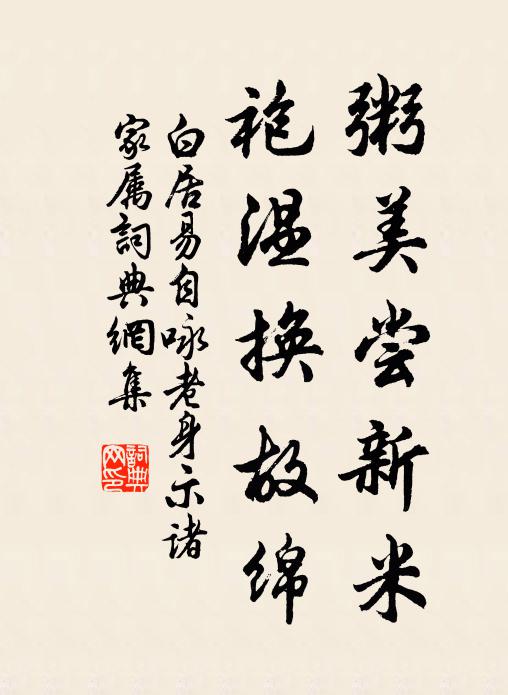 粥美尝新米
袍温换故绵
白居易自咏老身示诸
家属词典網集
詞典网印